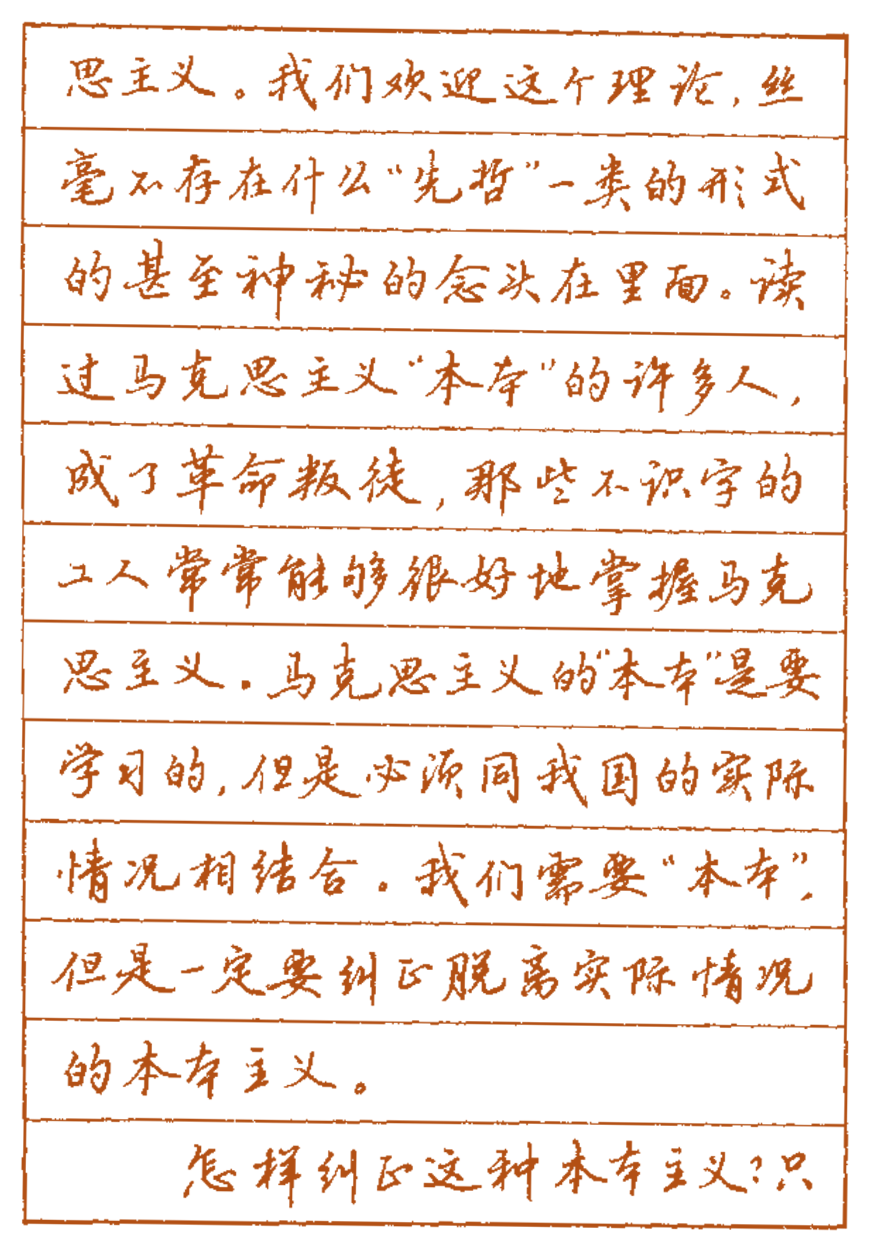 思主义。我们欢迎这个理论,丝
毫不存在什么“先哲”一类的形式
的甚至神秘的念头在里面。读
过马克思主义“本本”的许多人,
成了革命叛徒,那些不识字的
工人常常能够很好地掌握马克
思主义。马克思主义的“本本”是要
学习的,但是必须同我国的实际
情况相结合。我们需要“本本”,
但是一定要纠正脱离实际情况
的本本主义。
怎样纠正这种本本主义?只